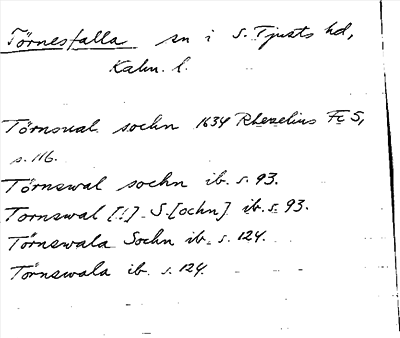 Törnesfalla sn i S. Tjusts hd,
Kalm. l.
Törnsual sochn 1634 Rhezelius Fc 5,
s. 116.
Törnswal sochn ib. s. 93.
Tornswal [!] S.[ochn] ib. s. 93.
Törnswala Sochn ib. s. 124.
Törnswala ib. s. 124.